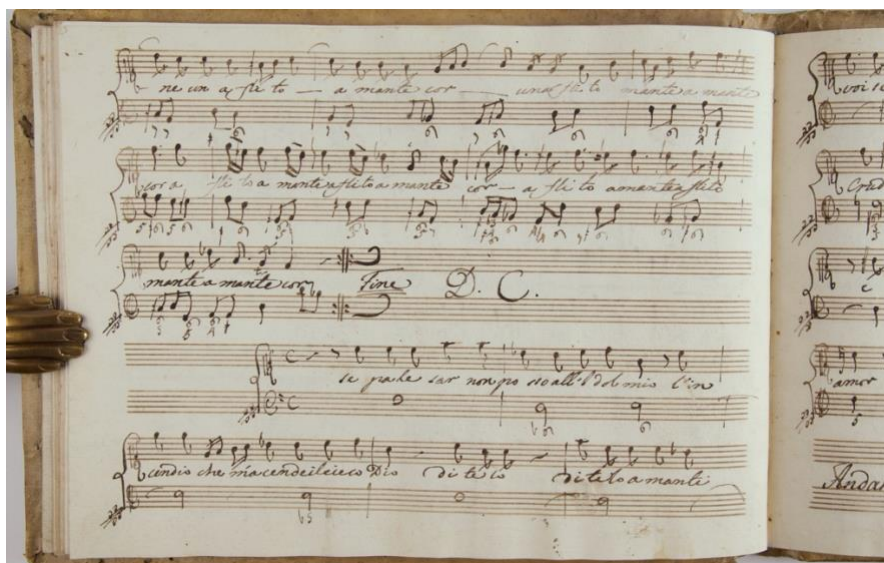 ne un aflito a mante cor un aflito mante a mante
cor a flito a mante aflito a mante cor a flito amante aflito
mante a mante cor Fine D. C.
se pale sar non posso all'Idol mio l'in
cendio che m'acende il cieco Dio di te lo di te lo a mante
voi se
Crud
è
amor
Andan